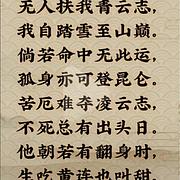 无人扶我青云志,
我自踏雪至山巅。
倘若命中无此运,
孤身亦可登昆仑。
苦厄难夺凌云志,
不死总有出头日。
他朝若有翻身时,
生吃黄连也叫甜。